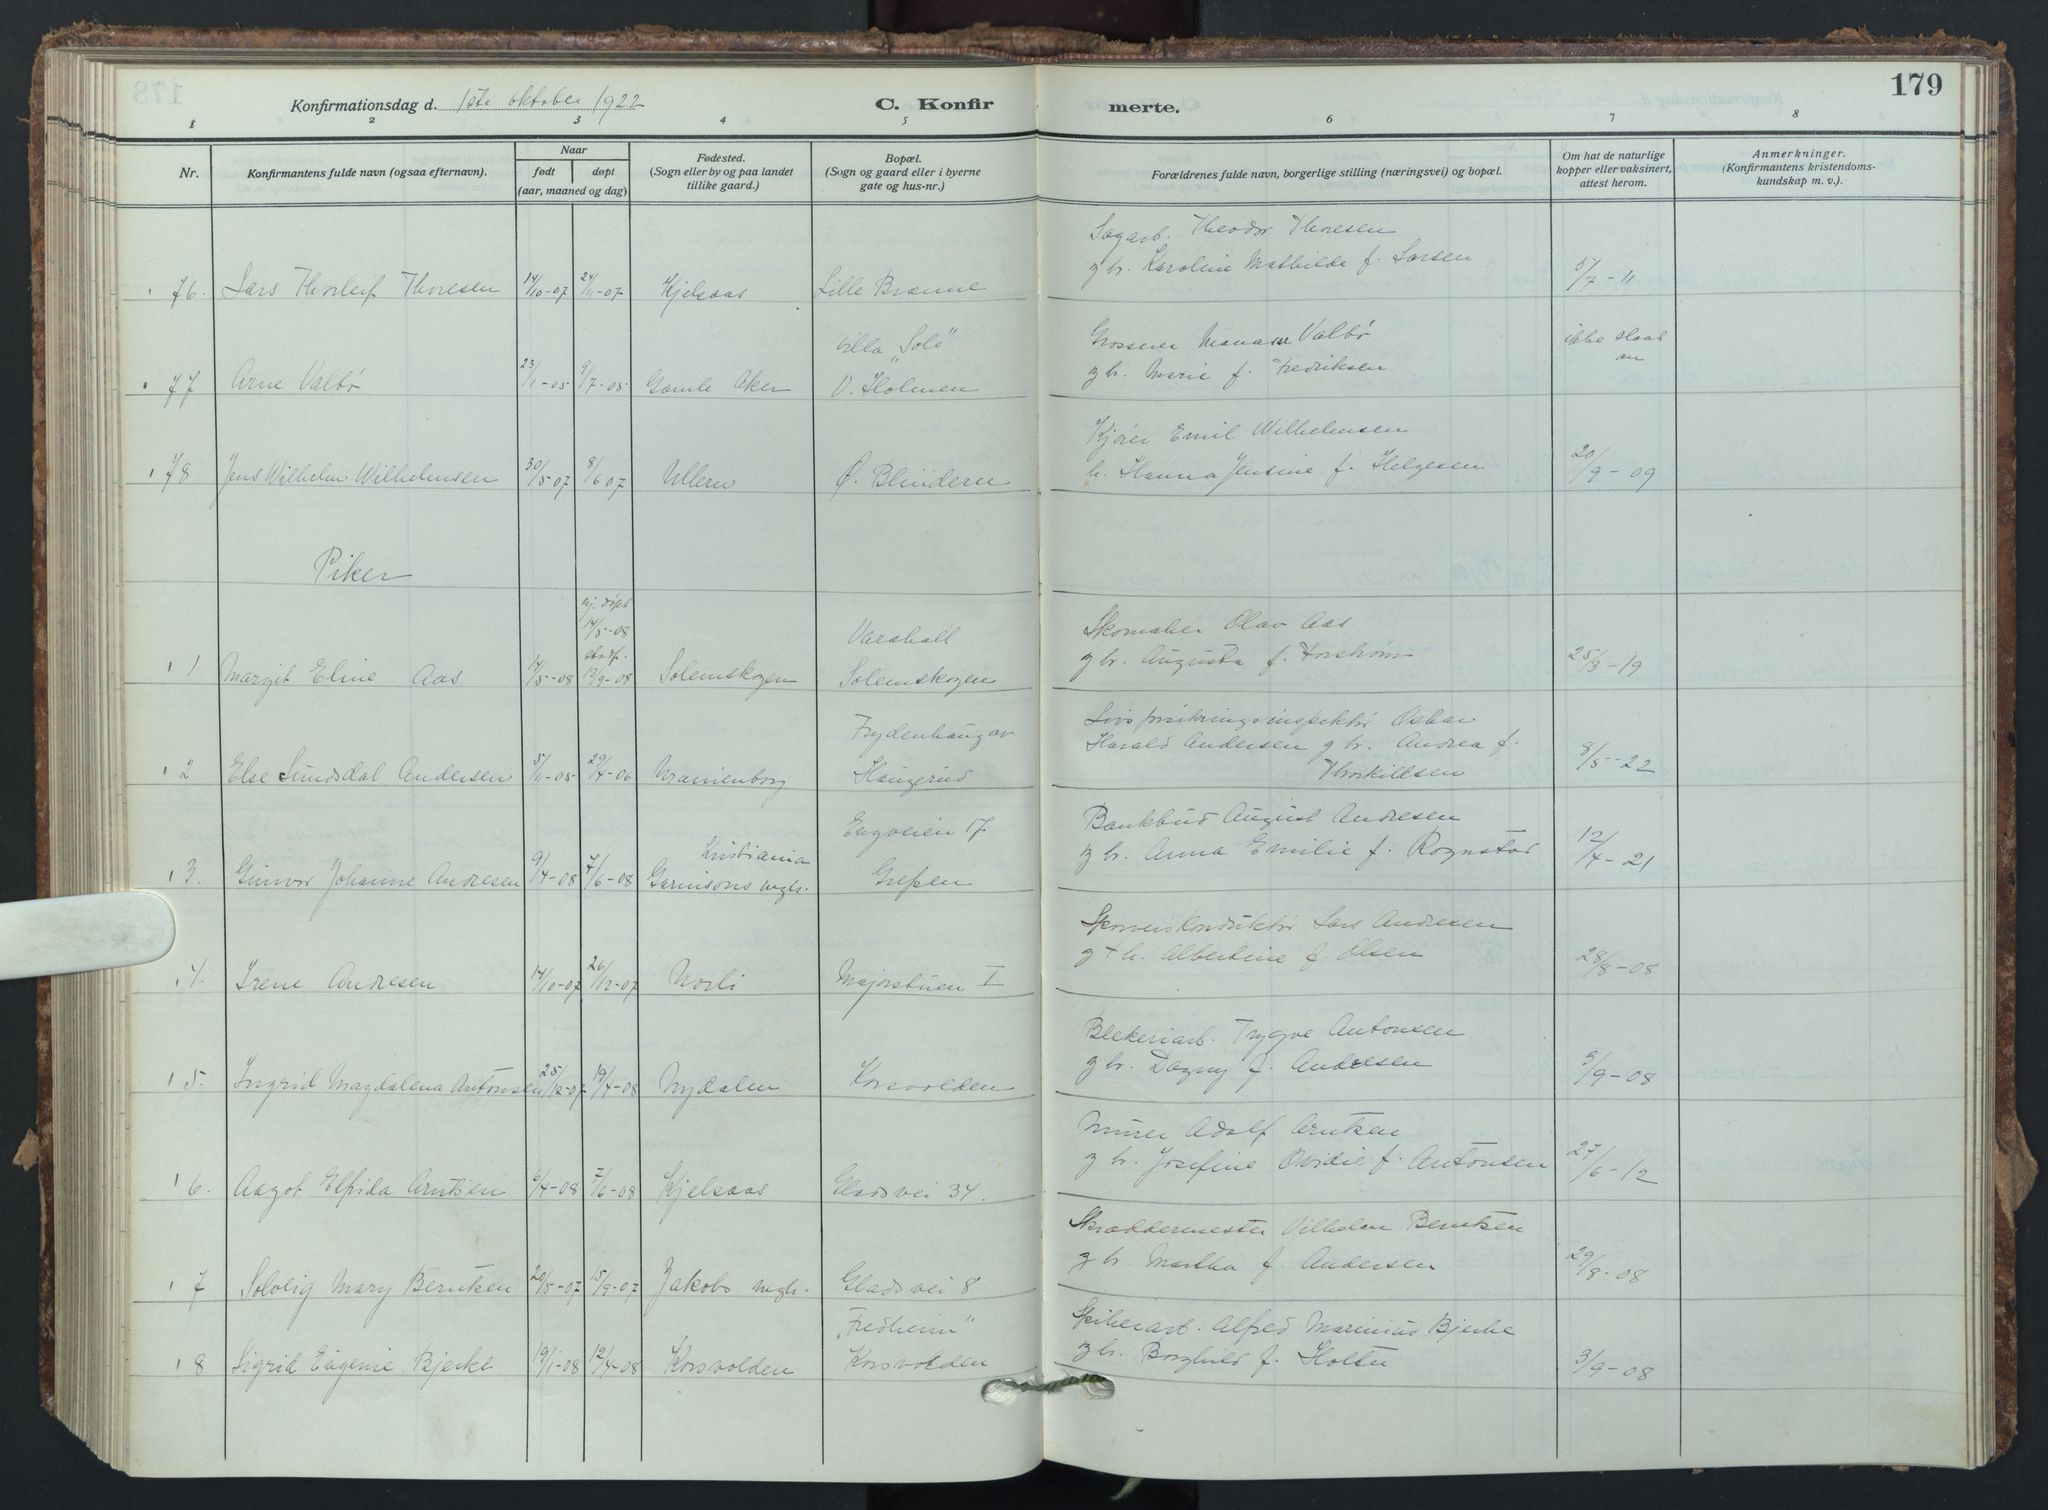 179
Konfirmationsdag d. 1ste oktober 1922 C. Konfirmerte.
1 2 3 4 5 6 7 8
Nr. Konfirmantens fulde navn (ogsaa efternavn). Naar født døpt (aar, maaned og dag) Fødested. (Sogn eller by og paa landet tillike gaard.) Bopæl. (Sogn og gaard eller i byerne gate og hus-nr.) Forældrenes fulde navn, borgerlige stilling (næringsvei) og bopæl. Om hat de naturlige kopper eller vaksinert, attest herom. Anmerkninger. (Konfirmantens kristendomskundskap m. v.).
Sagarb. Theodor Thoresen
76. Lars Thorleif Thoresen 14/10-07 24/11-07 Kjelsaas Lille Brænne g hr. Karoline Mathilde f. Larsen 5/7-11
Villa „Sole" Grosserer Manasse Valbø ikke slaat an
77 Arne Valbø 23/1-05 9/7-05 Gamle Aker V. Holmen g hr. Marie f. Fredriksen
Kjører Emil Wilhelmsen
78 Jens Wilhelm Wilhelmsen 30/5 07 8/6 07 Ullern Ø. Blindern h. Hanna Jensine f. Helgesen 20/9-09
Piker
hj. døpt 14/5-08 Varahall Skomaker Olav Aas
1 Margit Eline Aas 14/5-08 stadf. 13/9-08 Solemskogen Solemskogen g hr. Augusta f. Forstrøm 25/3-19
Frydenhaug av Livsforsikringsinspektør Oskar
Harald Andersen g hr. Andrea f.
2 Else Sundsdal Andersen 5/11-05 29/4-06 Uranienborg Haugerud Thorkillsen 8/5-22
Engveien 17 Bankbud August Andresen
3. Gunvor Johanne Andresen 9/4-08 7/6-08 Kristiania Garnisons mgh. Grefsen g hr. Anna Emilie f. Rognstad 12/4-21
Sporveiskonduktør Lars Andresen
4. Irene Andresen 14/10-07 26/12-07 Norli Majorstuen I g + h. Albertine f. Olsen 28/8-08
Blekeriarb. Trygve Antonsen
5. Ingrid Magdalena Antonsen 25/12-07 19/4-08 Nydalen Korsvolden g hr. Dagny f. Andresen 5/9-08
Murer Adolf Arntzen
6. Aagot Elfrida Arntsen 6/4-08 7/6-08 Kjelsaas Gladsvei 34. g hr. Josefine Ovidie f. Antonsen 27/6-12
Skræddermester Vilhelm Berntzen
7 Solveig Mary Berntzen 20/8-07 15/9-07 Jakobs mgh. Gladsvei 8 g hr. Martha f. Andersen 29/8-08
„Fredheim" Spikerarb. Alfred Marinius Bjerke
8 Sigrid Eugenie Bjerke 19/1-08 12/4-08 Korsvolden Korsvolden g hr. Borghild f. Holter 3/9-08